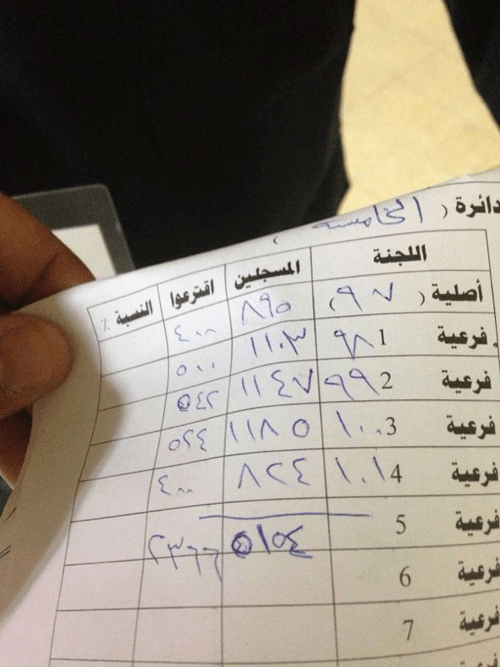 دائرة ( الخامسة )
اللجنة المسجلين اقترعوا النسبة ٪
أصلية ( ٩٧ ) ٨٩٥ ٤٠٠
فرعية 1 ٩٨ ١١٠٣ ٥٠٠
فرعية 2 ٩٩ ١١٤٧ ٥٤٢
فرعية 3 ١٠٠ ١١٨٥ ٥٢٤
فرعية 4 ١٠١ ٨٢٤ ٤٠٠
فرعية 5 ٥١٥٤ ٢٣٦٦
فرعية 6
فرعية 7